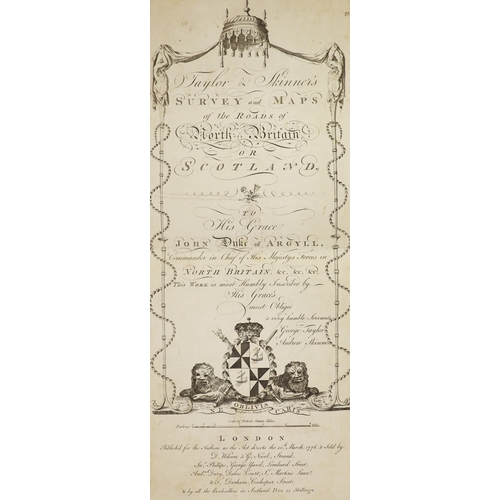 Taylor & Skinner's
SURVEY and MAPS
of the ROADS of
North Britain
OR
SCOTLAND.
TO
His Grace
JOHN Duke of ARGYLL,
Commander in Chief of His Majestys Forces in
NORTH BRITAIN, &c. &c. &c.
This WORK is most Humbly Inscribed by
His Grace's
most Obliged
& very humble Servants
George Taylor
Andrew Skinner
NE OBLIVISCARIS
LONDON
Published for the Authors as the Act directs the 20th March 1776, & Sold by
D. Wilson & G. Nicol Strand,
George Yard, Lombard Street,
Dukes Court, St. Martins Lane,
& by all the Booksellers in Scotland. Price 12 Shillings